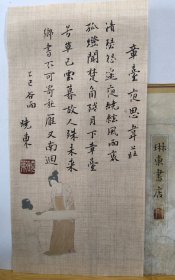 章臺夜思 韋莊
清瑟怨遥夜繞絃風雨哀
孤燈聞楚角殘月下章臺
芳草已雲暮故人殊未来
鄉書不可寄秋雁又南迴
乙巳谷雨 曉東
琳東書店